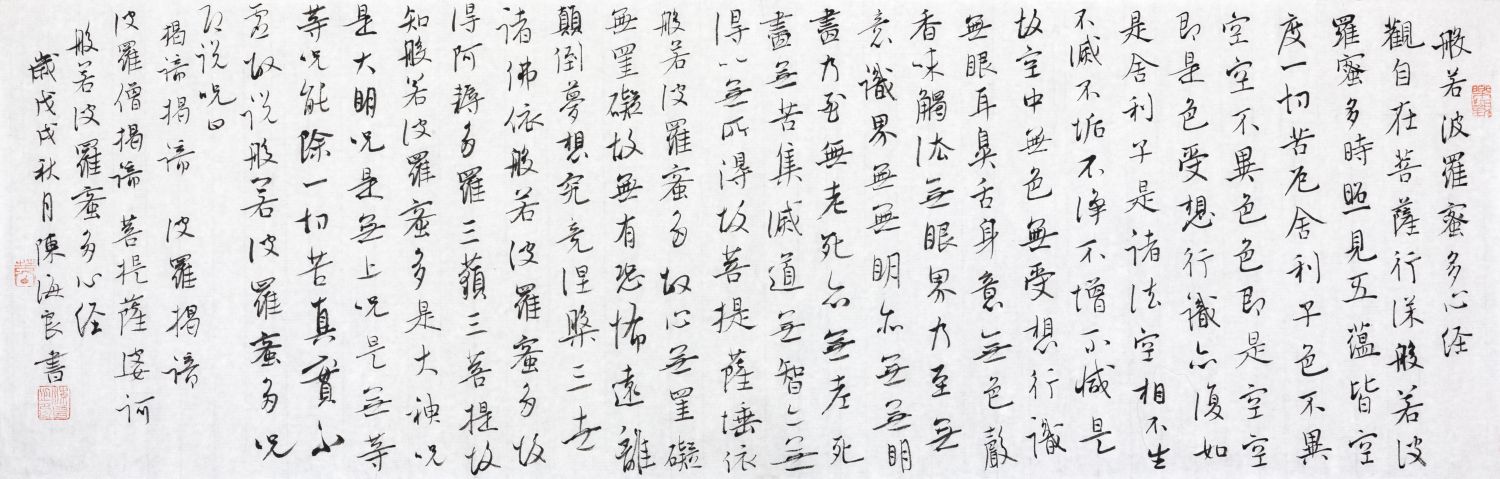 般若波羅蜜多心经
觀自在菩薩行深般若波
羅蜜多時照見五蕴皆空
度一切苦厄舍利子色不異
空空不異色色即是空空
即是色受想行識亦復如
是舍利子是諸法空相不生
不滅不垢不淨不增不減是
故空中無色無受想行識
無眼耳鼻舌身意無色聲
香味觸法無眼界乃至無
意識界無無明亦無無明
盡乃至無老死亦無老死
盡無苦集滅道無智亦無
得以無所得故菩提薩埵依
般若波羅蜜多故心無罣礙
無罣礙故無有恐怖遠離
顛倒夢想究竟涅槃三世
諸佛依般若波羅蜜多故
得阿耨多羅三藐三菩提故
知般若波羅蜜多是大神呪
是大明呪是無上呪是無等
等呪能除一切苦真實不
虛故说般若波羅蜜多呪
即说呪曰
揭諦揭諦 波羅揭諦
波羅僧揭諦 菩提薩婆訶
般若波羅蜜多心经
歲戊戌秋月陳海良書